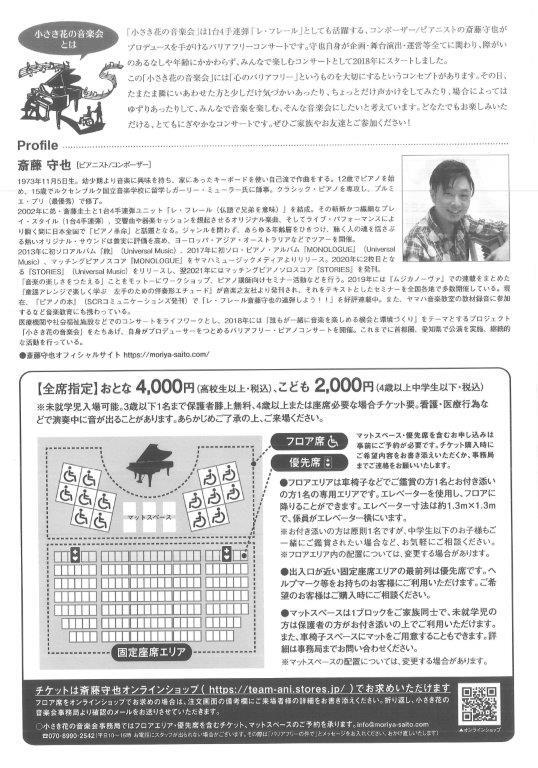 小さき花の音楽会
とは
「小さき花の音楽会」は1台4手連弾「レ・フレール」としても活躍する、コンポーザー/ピアニストの斎藤守也が
プロデュースを手がけるバリアフリーコンサートです。守也自身が企画・舞台演出・運営等全てに関わり、障がい
のあるなしや年齢にかかわらず、みんなで楽しむコンサートとして2018年にスタートしました。
この「小さき花の音楽会」には「心のバリアフリー」というものを大切にするというコンセプトがあります。その日、
たまたま隣にいあわせた方と少しだけ気づかいあったり、ちょっとだけ声かけをしてみたり、場合によっては
ゆずりあったりして、みんなで音楽を楽しむ、そんな音楽会にしたいと考えています。どなたでもお楽しみいた
だける、とてもにぎやかなコンサートです。ぜひご家族やお友達とご参加ください!
Profile
斎藤 守也 [ピアニスト/コンポーザー]
1973年11月5日生。幼少期より音楽に興味を持ち、家にあったキーボードを使い自己流で作曲をする。12歳でピアノを始
め、15歳でルクセンブルク国立音楽学校に留学しガーリー・ミューラー氏に師事。クラシック・ピアノを専攻し、プルミ
エ・プリ（最優秀）で修了。
2002年に弟・斎藤圭土と1台4手連弾ユニット「レ・フレール（仏語で兄弟を意味）」を結成。その斬新かつ繊細なプレ
イ・スタイル（1台4手連弾）、交響曲や器楽セッションを想起させるオリジナル楽曲、そしてライブ・パフォーマンスによ
り瞬く間に日本全国で「ピアノ革命」と話題となる。ジャンルを問わず、あらゆる年齢層をひきつけ、聴く人の魂を揺さぶ
る熱いオリジナル・サウンドは着実に評価を高め、ヨーロッパ・アジア・オーストラリアなどでツアーを開催。
2013年に初ソロアルバム「 」（Universal Music）をリリース。2017年に初ソロ・ピアノ・アルバム「MONOLOGUE」（Universal
Music）、マッチングピアノスコア「MONOLOGUE」をヤマハミュージックメディアよりリリース。2020年に2枚目とな
る「STORIES」（Universal Music）をリリースし、翌2021年にはマッチングピアノソロスコア「STORIES」を発刊。
「音楽の楽しさをつたえる」ことをモットーにワークショップ、ピアノ講師向けセミナー活動などを行う。2019年は「ムジカノーヴァ」での連載をまとめた
「童謡アレンジで楽しく学ぶ 左手のための伴奏形エチュード」が音楽之友社より発刊され、それをテキストとしたセミナーを全国各地で多数開催している。現
在、「ピアノの本」（SCRコミュニケーションズ発刊）で「レ・フレール斎藤守也の連弾しよう!!」を好評連載中。また、ヤマハ音楽教室の教材録音に参加
するなど音楽教育にも携わっている。
医療機関や社会福祉施設などでのコンサートをライフワークとし、2018年には「誰もが一緒に音楽を楽しめる機会と環境づくり」をテーマとするプロジェクト
「小さき花の音楽会」をたちあげ、自身がプロデューサーをつとめるバリアフリー・ピアノコンサートを開催。これまでに首都圏、愛知県で公演を実施、継続的
な活動を行っている。
●斎藤守也オフィシャルサイト https://moriya-saito.com/
【全席指定】おとな 4,000円（高校生以上・税込）、こども 2,000円（4歳以上中学生以下・税込）
※未就学児入場可能。3歳以下1名まで保護者膝上無料、4歳以上または座席必要な場合チケット要。看護・医療行為な
どで演奏中に音が出ることがあります。あらかじめご了承の上、ご来場ください。
フロア席
優先席
マットスペース・優先席を含むお申し込みは
事前にご予約が必要です。チケット購入時に
ご希望内容をお書き添えいただくか、事務局
までご連絡をお願いいたします。
マットスペース
固定座席エリア
●フロアエリアは車椅子などでご鑑賞の方1名とお付き添い
の方1名の専用エリアです。エレベーターを使用し、フロアに
降りることができます。エレベーター寸法は約1.3m×1.3m
で、係員がエレベーター横にいます。
※お付き添いの方は原則1名ですが、中学生以下のお子様もご
一緒にご鑑賞されたい場合など、お気軽にご相談ください。
※フロアエリア内の配置については、変更する場合があります。
●出入口が近い固定座席エリアの最前列は優先席です。ヘ
ルプマーク等をお持ちのお客様にご利用いただけます。ご希
望のお客様はご購入時にお知らせください。
●マットスペースは1ブロックをご家族同士で、未就学児の
方は保護者の方がお付き添いの上でご利用いただけます。
また、車椅子スペースにマットをご用意することもできます。詳
細は事務局までお問い合わせください。
※マットスペースの配置については、変更する場合があります。
チケットは斎藤守也オンラインショップ（ https://team-ani.stores.jp/ ）でお求めいただけます
フロア席をオンラインショップでお求めの場合は、注文画面の備考欄にご来場者様の詳細をお書き添えください。折り返し、小さき花の
音楽会事務局より確認のメールをお送りさせていただきます。
○小さき花の音楽会事務局ではフロアエリア・優先席を含むチケット、マットスペースのご予約を承ります。info@moriya-saito.com
☎070-8990-2542（平日10～16時 お電話にスタッフが出られない場合がございます。その際は「バリアフリーの件で」とメッセージをお入れください、おかけ直しいたします）
▲オンラインショップ